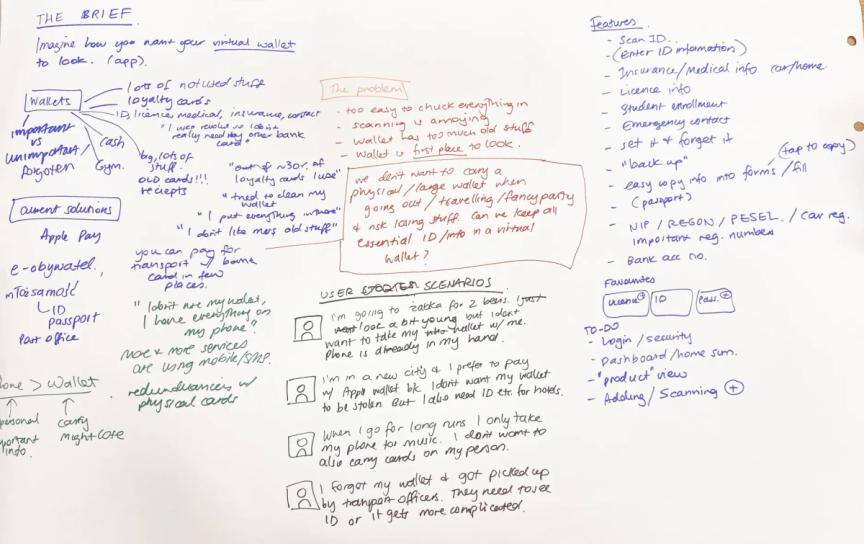 THE BRIEF
Imagine how you want your virtual wallet
to look. (app).
Wallets
lots of not used stuff
loyalty cards
ID, licence, medical, insurance, contact
important
vs
unimportant /
forgotten
cash
Gym.
big, lots of
stuff.
OLD cards!!!
reciepts
"I use revolut so I don't
really need my other bank
card"
"out of ~30 of
loyalty cards I use"
"tried to clean my
wallet
"I put everything in there"
"I don't like mess old stuff"
Current solutions
Apple Pay
e-obywatel,
mTożsamość
ID
passport
Post office
you can pay for
transport w/ bank
card in few
places.
"I don't use my wallet,
I have everything on
my phone".
more & more services
are using mobile/SMS.
redundancies w/
physical cards
> Wallet
personal
important
info.
carry
might lose
The problem
- too easy to chuck everything in
- scanning is annoying
- wallet has too much old stuff
- wallet is first place to look.
we don't want to carry a
physical/large wallet when
going out/travelling/fancy party
& risk losing stuff. Can we keep all
essential ID/info in a virtual
wallet?
USER SCENARIOS
I'm going to żabka for 2 beers. I just
look a bit young but I don't
want to take my wallet w/ me.
Phone is already in my hand.
I'm in a new city & I prefer to pay
w/ Apple wallet b/c I don't want my wallet
to be stolen. But I also need ID etc. for hotels.
When I go for long runs I only take
my phone for music. I don't want to
also carry cards on my person.
I forgot my wallet & got picked up
by transport officers. They need to see
ID or it gets more complicated.
Features
- Scan ID.
- (Enter ID information)
- Insurance/Medical info car/home
- Licence info
- Student enrollment
- Emergency contact
- set it & forget it
- "back up"
(tap to copy)
- easy copy info into forms / fill
- (passport)
- NIP / REGON / PESEL. / Car reg.
important reg. numbers
- Bank acc no.
Favourites
licence
ID
Pass.
TO-DO
- Login / security
- Dashboard/home sum.
- "product" view
- Adding/Scanning +